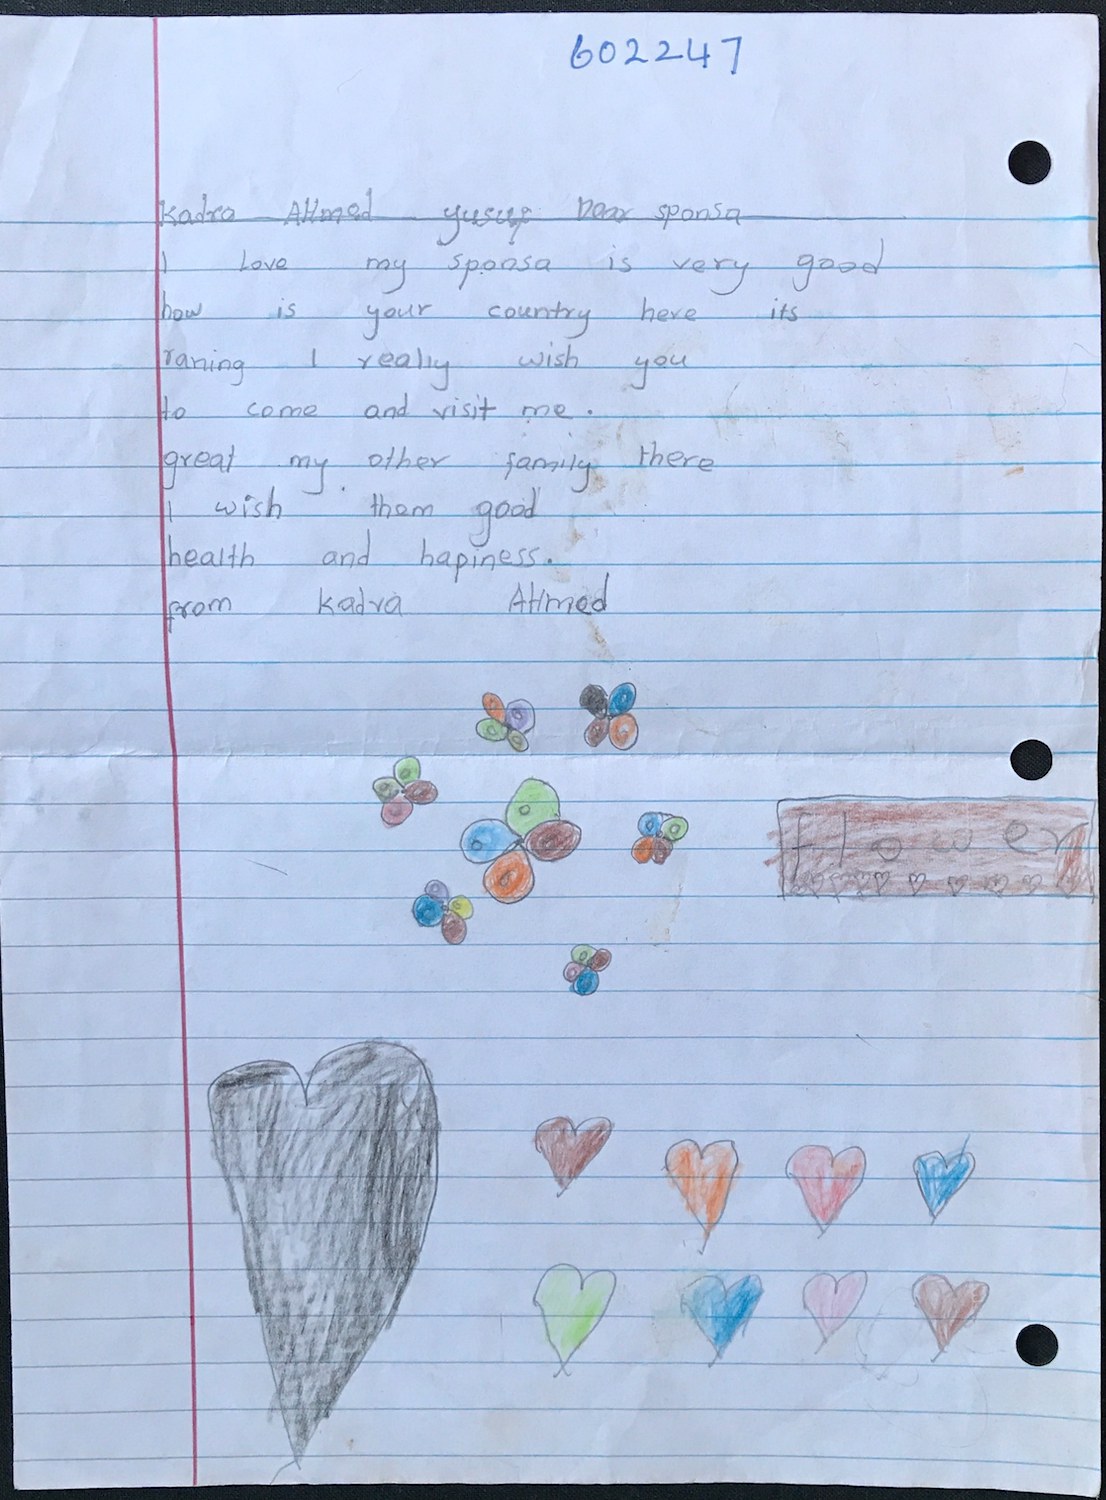 602247
Kadra Ahmed yusuf Dear sponsa
I Love my sponsa is very good
how is your country here its
raning I really wish you
to come and visit me.
great my other family there
I wish them good
health and hapiness.
from Kadra Ahmed
flower